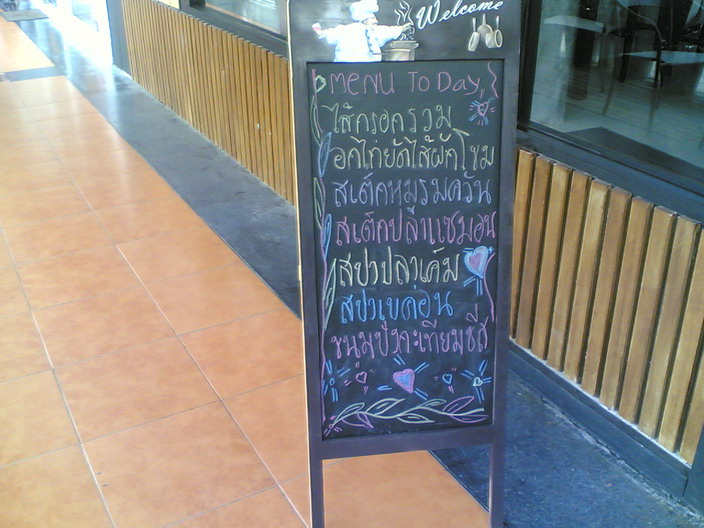 Welcome
MENU TO Day,
ไส้กรอกรวม
อกไก่ยัดไส้ผักโขม
สเต็กหมูรมควัน
สเต็กปลาแซมอน
สปาปลาเค็ม
สปาเบค่อน
ขนมปังกะเทียมชีส